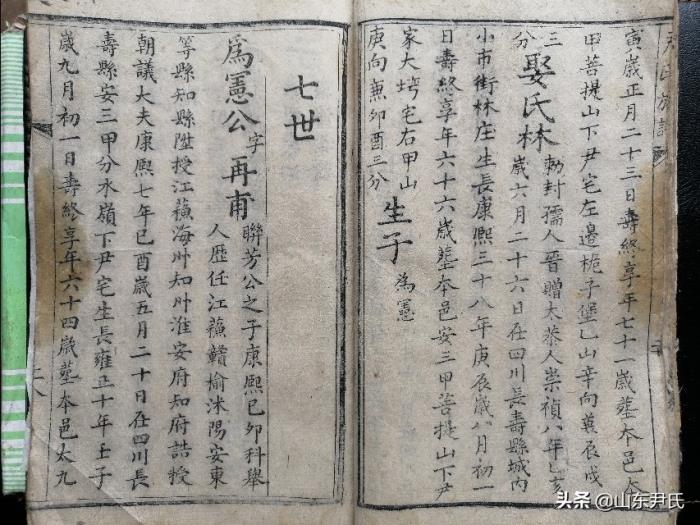 寅歲正月二十三日壽終享年七十一歲塟本邑太
甲菩提山下尹宅左邊桅子堡乙山辛向蒹辰戌
三
分
娶氏林
勅封孺人晉贈大恭人崇禎八年乙亥
歲六月二十六日在四川長壽縣城內
小市街林庄生長康熙三十八年庚辰歲八月初一
日壽終享年六十六歲塟本邑安三甲菩提山下尹
家大塆宅右甲山
庚向兼卯酉三分
生子
為憲
七世
為憲公
字
再甫
聯芳公之子康熙己卯科舉
人歷任江蘓贛榆沭陽安東
等縣知縣陞授江蘓海州知州淮安府知府誥授
朝議大夫康熙七年己酉歲五月二十日在四川長
壽縣安三甲分水嶺下尹宅生長雍正十年壬子
歲九月初一日壽終享年六十四歲塟本邑太九
尹氏族譜
頭条 @山东尹氏